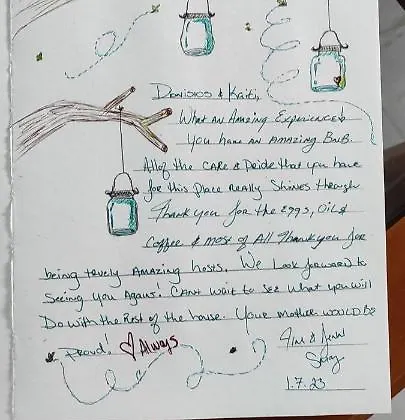 Dionisios & Kaiti,
What An Amazing Experience!
You have an Amazing BnB.
All of the Care & Pride that you have
for this Place Really Shines through
Thank you for the Eggs, Oil &
Coffee & most of All Thank you for
being truely Amazing hosts. We Look forward to
Seeing You Again! CAnt wait to See what you will
Do with the Rest of the house. Your Mother would be
Proud! Always
& Jenn
1.7.23